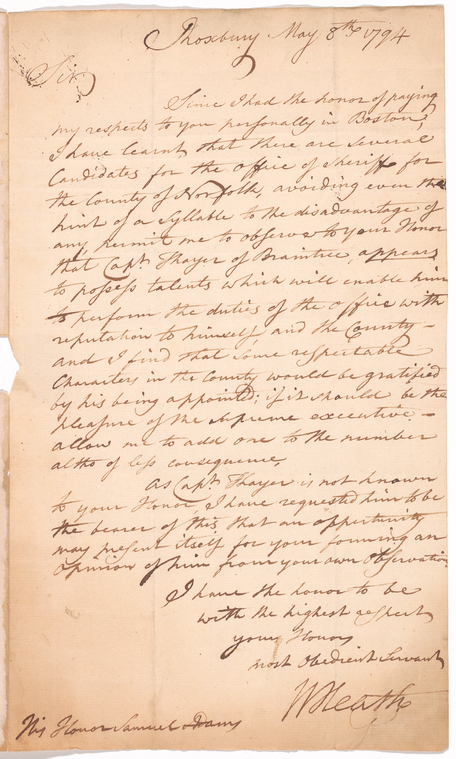 Roxbury May 8th 1794
Sir
Since I had the honor of paying
my respects to you personally in Boston,
I have learnt that there are several
Candidates for the office of sheriff for
the County of Norfolk, avoiding even the
hint of a Syllable to the disadvantage of
any, permit me to observe to your Honor
that Capt. Thayer of Braintree, appears
to possess talents which will enable him
to perform the duties of the office with
reputation to himself, and the County—
and I find that some respectable
Characters in the County would be gratified
by his being appointd; if it should be the
pleasure of the supreme executive—
allow me to add one to the number
altho of less consequence,
As Capt. Thayer is not known
to your Honor, I have requested him to be
the bearer of this, that an oppertunity
may present itself for your forming an
opinion of him from your own Observation
I have the honor to be
with the highest respect
your Honors
most Obedient Servant
W Heath
His Honor Samuel Adams